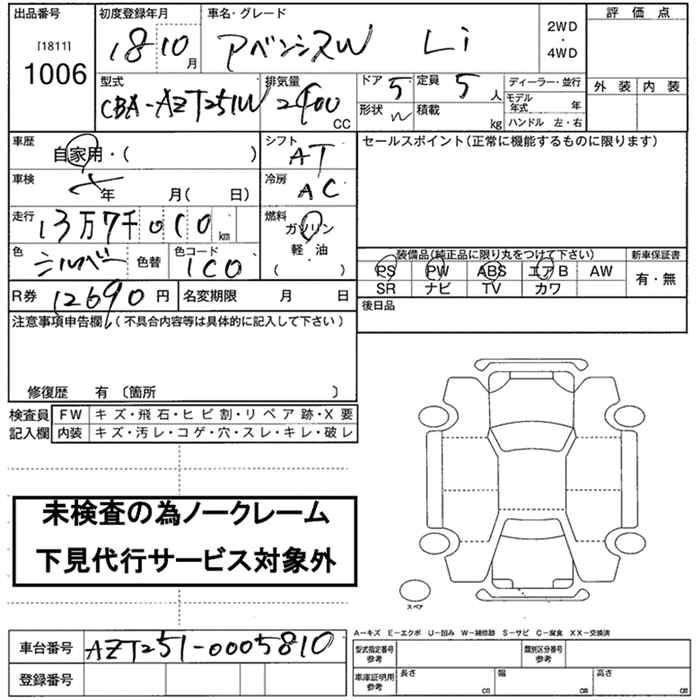 出品番号
[1811]
1006
初度登録年月
18 10 月
車名・グレード
アベンシスW Li
2WD
・
4WD
評価点
外装 内装
型式
CBA-AZT251W
排気量
2400 CC
ドア 5
定員 5 人
形状 W
積載 kg
ディーラー・並行
モデル年式 年
ハンドル 左・右
車歴
自家用・( )
シフト
AT
セールスポイント(正常に機能するものに限ります)
車検
年 月( 日)
冷房
AC
走行
13万7千010 km
燃料
ガソリン
軽・油
( )
色
シルバー
色替
色コード
1C0
装備品(純正品に限り丸をつけて下さい)
PS PW ABS エアB AW
SR ナビ TV カワ
新車保証書
有・無
R券 12690 円
名変期限 月 日
後日品
注意事項申告欄(不具合内容等は具体的に記入して下さい)
修復歴 有〔箇所 〕
検査員記入欄
FW キズ・飛石・ヒビ割・リペア跡・X要
内装 キズ・汚レ・コゲ・穴・スレ・キレ・破レ
未検査の為ノークレーム
下見代行サービス対象外
スペア
A-キズ E-エクボ U-凹み W-補修跡 S-サビ C-腐食 XX-交換済
車台番号 AZT251-0005810
登録番号
型式指定番号
参考
類別区分番号
参考
車庫証明用
参考
長さ cm
幅 cm
高さ cm